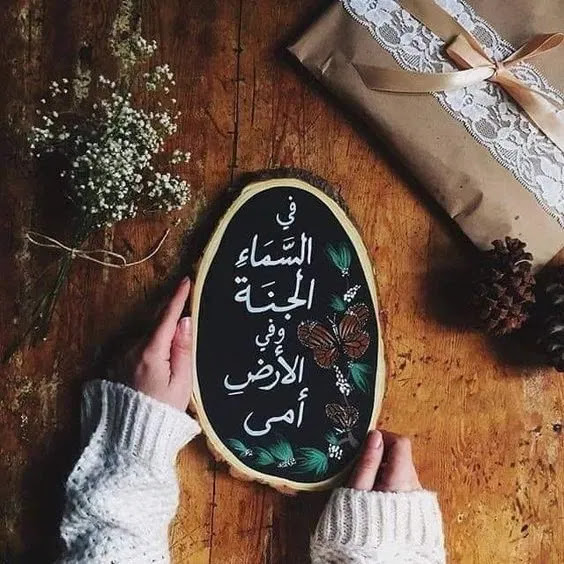 في
السَّمَاءِ
الجنَة
وفي
الأرضِ
أمى